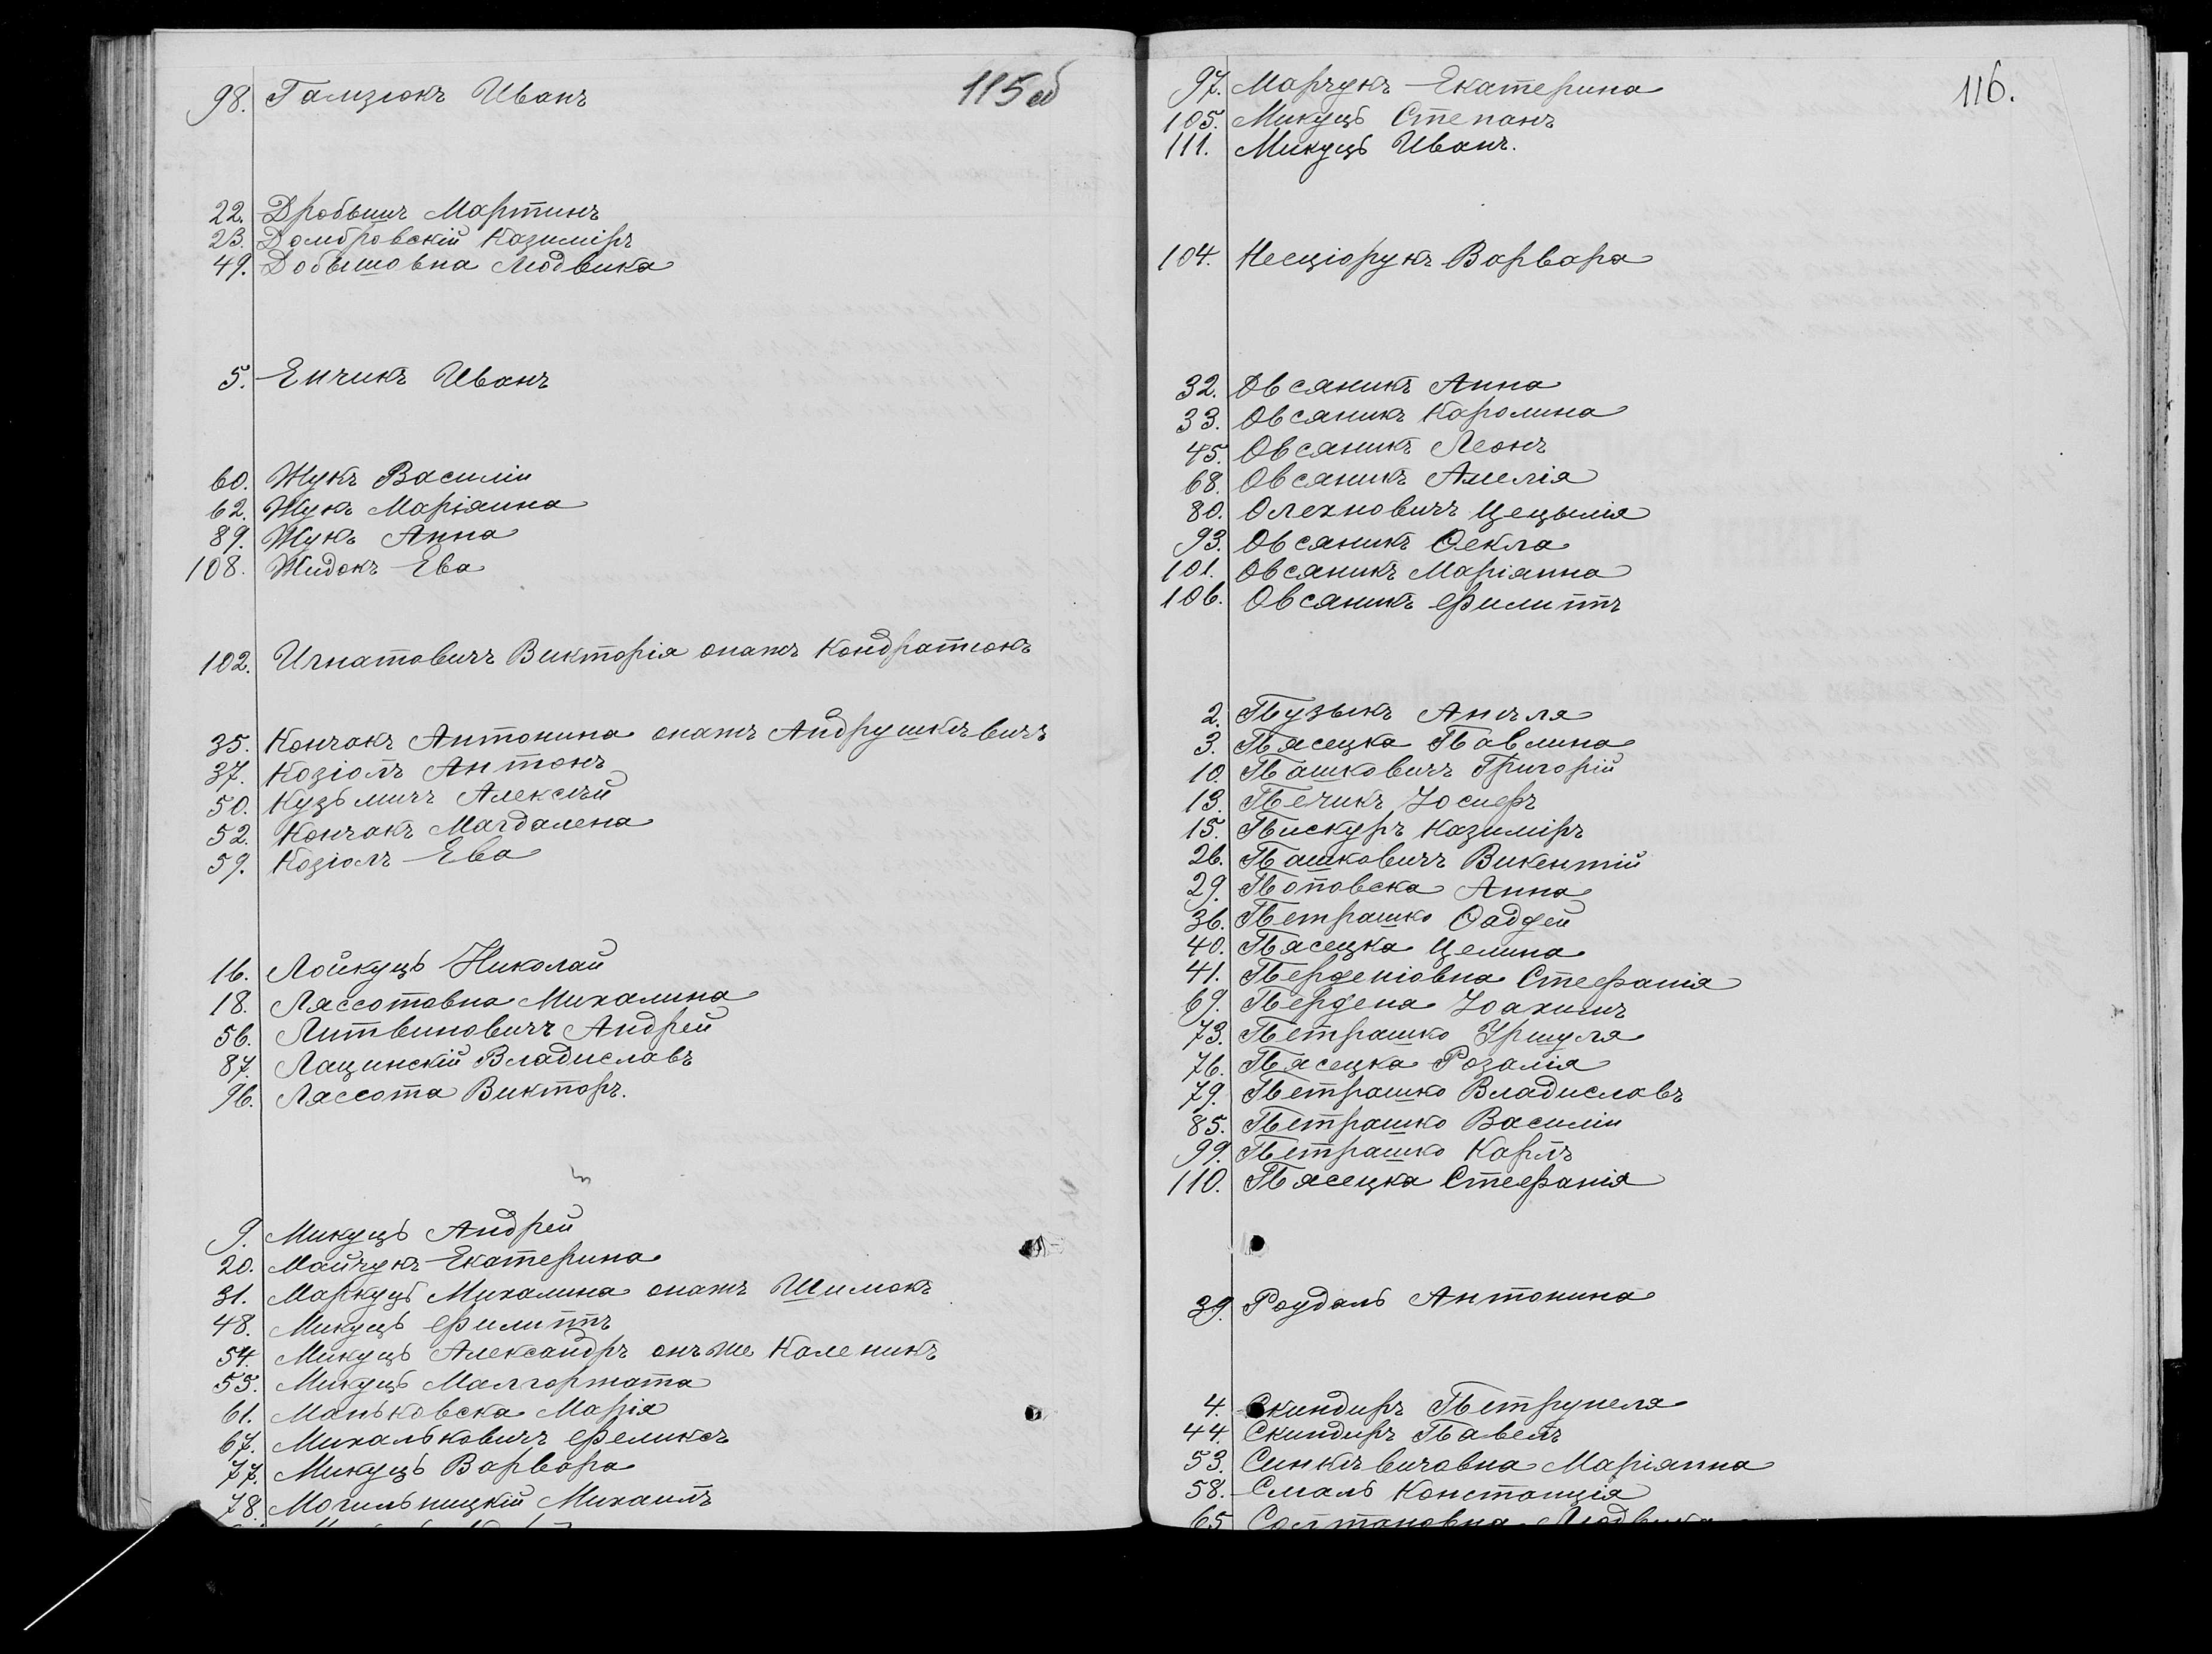 115 об
98. Гализюкъ Иванъ
22. Дробышъ Мартинъ
23. Домбровскій Казиміръ
49. Добышовна Людвика
5. Енчикъ Иванъ
60. Жукъ Василій
62. Жукъ Маріянна
89. Жукъ Анна
108. Жидокъ Ева
102. Игнатовичъ Викторія онажъ Кондратюкъ
35. Кончакъ Антонина онажъ Андрушкѣвичъ
37. Козіолъ Антонъ
50. Кузьмичъ Алексѣй
52. Кончакъ Магдалена
59. Козіолъ Ева
16. Лойкуць Николай
18. Лассотовна Михалина
56. Литвиновичъ Андрей
87. Лащинскій Владиславъ
96. Лассота Викторъ.
9. Микуць Андрей
20. Майчукъ Екатерина
31. Маркуць Михалина онажъ Шимокъ
48. Микуць Филиппъ
54. Микуць Александръ онъ же Каленикъ
55. Микуць Малгоржата
61. Маньковска Марія
67. Михальковичъ Феликсъ
77. Микуць Варвара
78. Могильницкій Михаилъ
116.
97. Марчукъ Екатерина
105. Микуць Степанъ
111. Микуць Иванъ.
104. Несціорукъ Варвара
32. Овсяникъ Анна
33. Овсяникъ Каролина
45. Овсяникъ Леонъ
68. Овсяникъ Амелія
80. Олехновичъ Цецылія
93. Овсяникъ Ѳекла
101. Овсяникъ Маріянна
106. Овсяникъ Филиппъ
2. Пузыкъ Анѣля
3. Пясецка Павлина
10. Пашковичъ Григорій
13. Печикъ Іосифъ
15. Пискуръ Казиміръ
26. Пашковичъ Викентій
29. Поповска Анна
36. Петрашко Ѳаддей
40. Пясецка Целина
41. Перденіовна Стефанія
69. Пердена Іоахимъ
73. Петрашко Уршуля
76. Пясецка Розалія
79. Петрашко Владиславъ
85. Петрашко Василій
99. Петрашко Карлъ
110. Пясецка Стефанія
39. Роудаль Антонина
4. Скиндиръ Петрунеля
44. Скиндиръ Павелъ
53. Синкѣвичовна Маріянна
58. Смаль Констанція
65. Солтановна Людвика